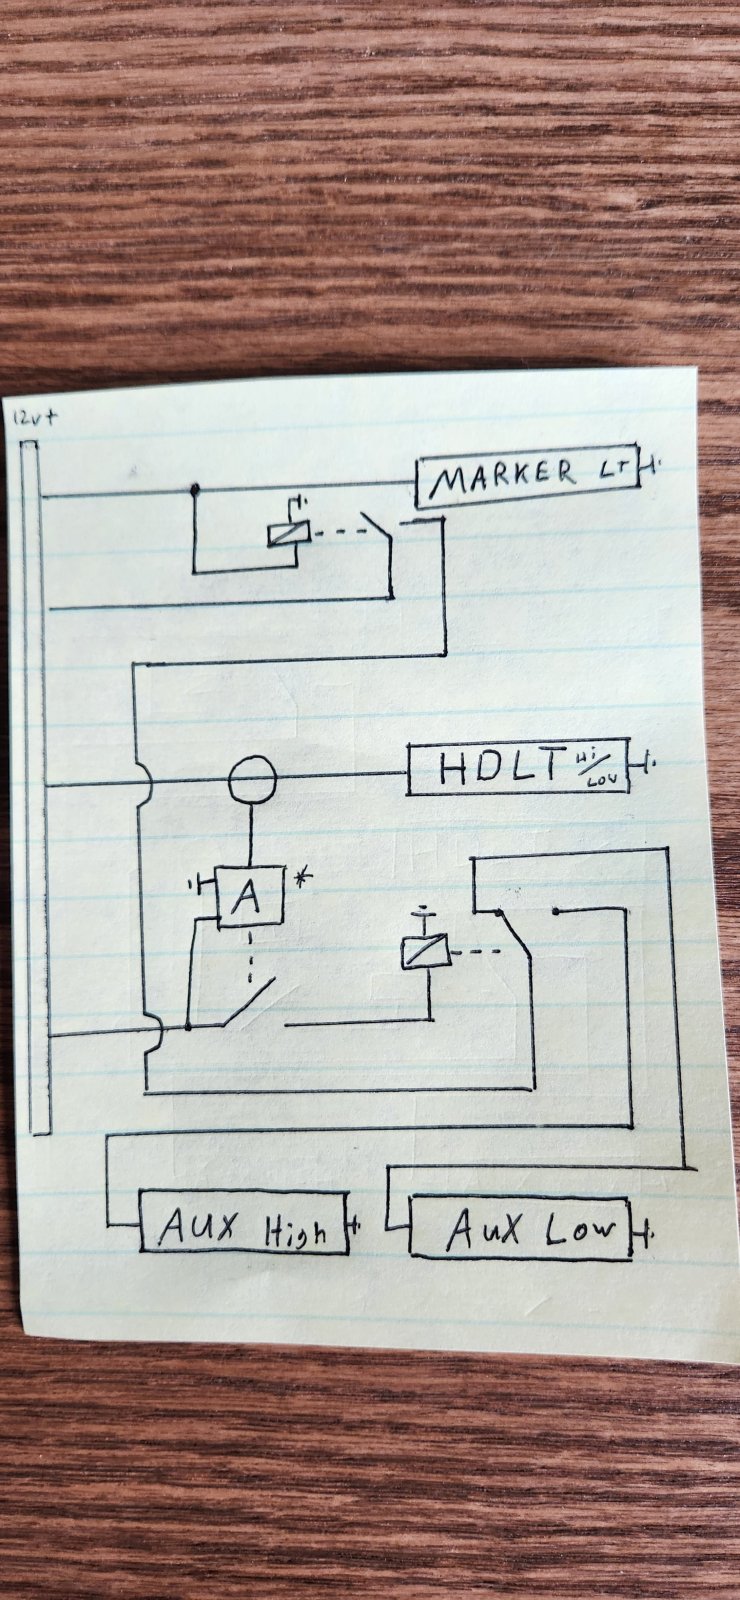 12v+
MARKER LT
HDLT Hi/Low
A *
AUX High
AUX Low